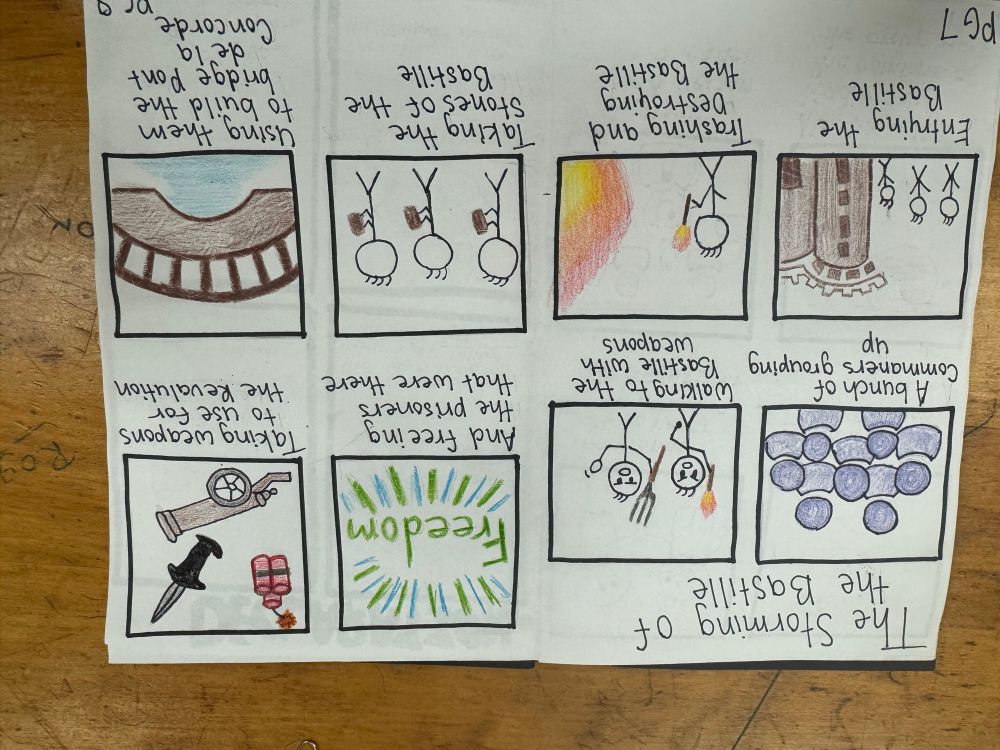 The Storming of
the Bastille
A bunch of
Commaners grouping
up
Walking to the
Bastille with
weapons
Entrying the
Bastille
Trashing and
Destroying
the Bastille
PG 7
Freedom
And freeing
the prisoners
that were there
Taking weapons
to use for
the Revalution
Taking the
Stones of the
Bastille
Using them
to build the
bridge Pont
de la
Concorde